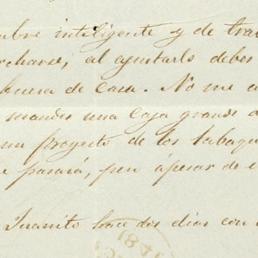 inteligente y de tra
al ajustarlo debes
buena de casa. No me
mandes una caja grande
proyecto de los tabaq
pasará, pero ápesar de
Juanito hace dos dias con
184